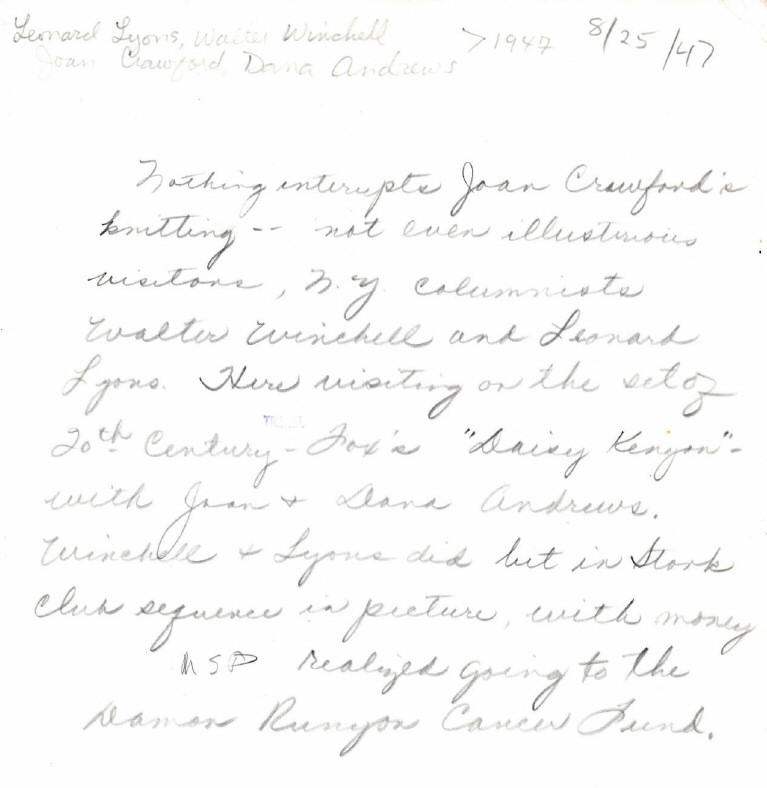 Leonard Lyons, Walter Winchell >1947 8/25/47
Joan Crawford, Dana Andrews
Nothing interupts Joan Crawford's
knitting -- not even illustrious
visitors, N.Y. columnists
Walter Winchell and Leonard
Lyons. Here visiting on the set of
20th Century-Fox's "Daisy Kenyon"-
with Joan + Dana Andrews.
Winchell + Lyons did bit in Stork
Club sequence in picture, with money
NSP realized going to the
Damon Runyon Cancer Fund.